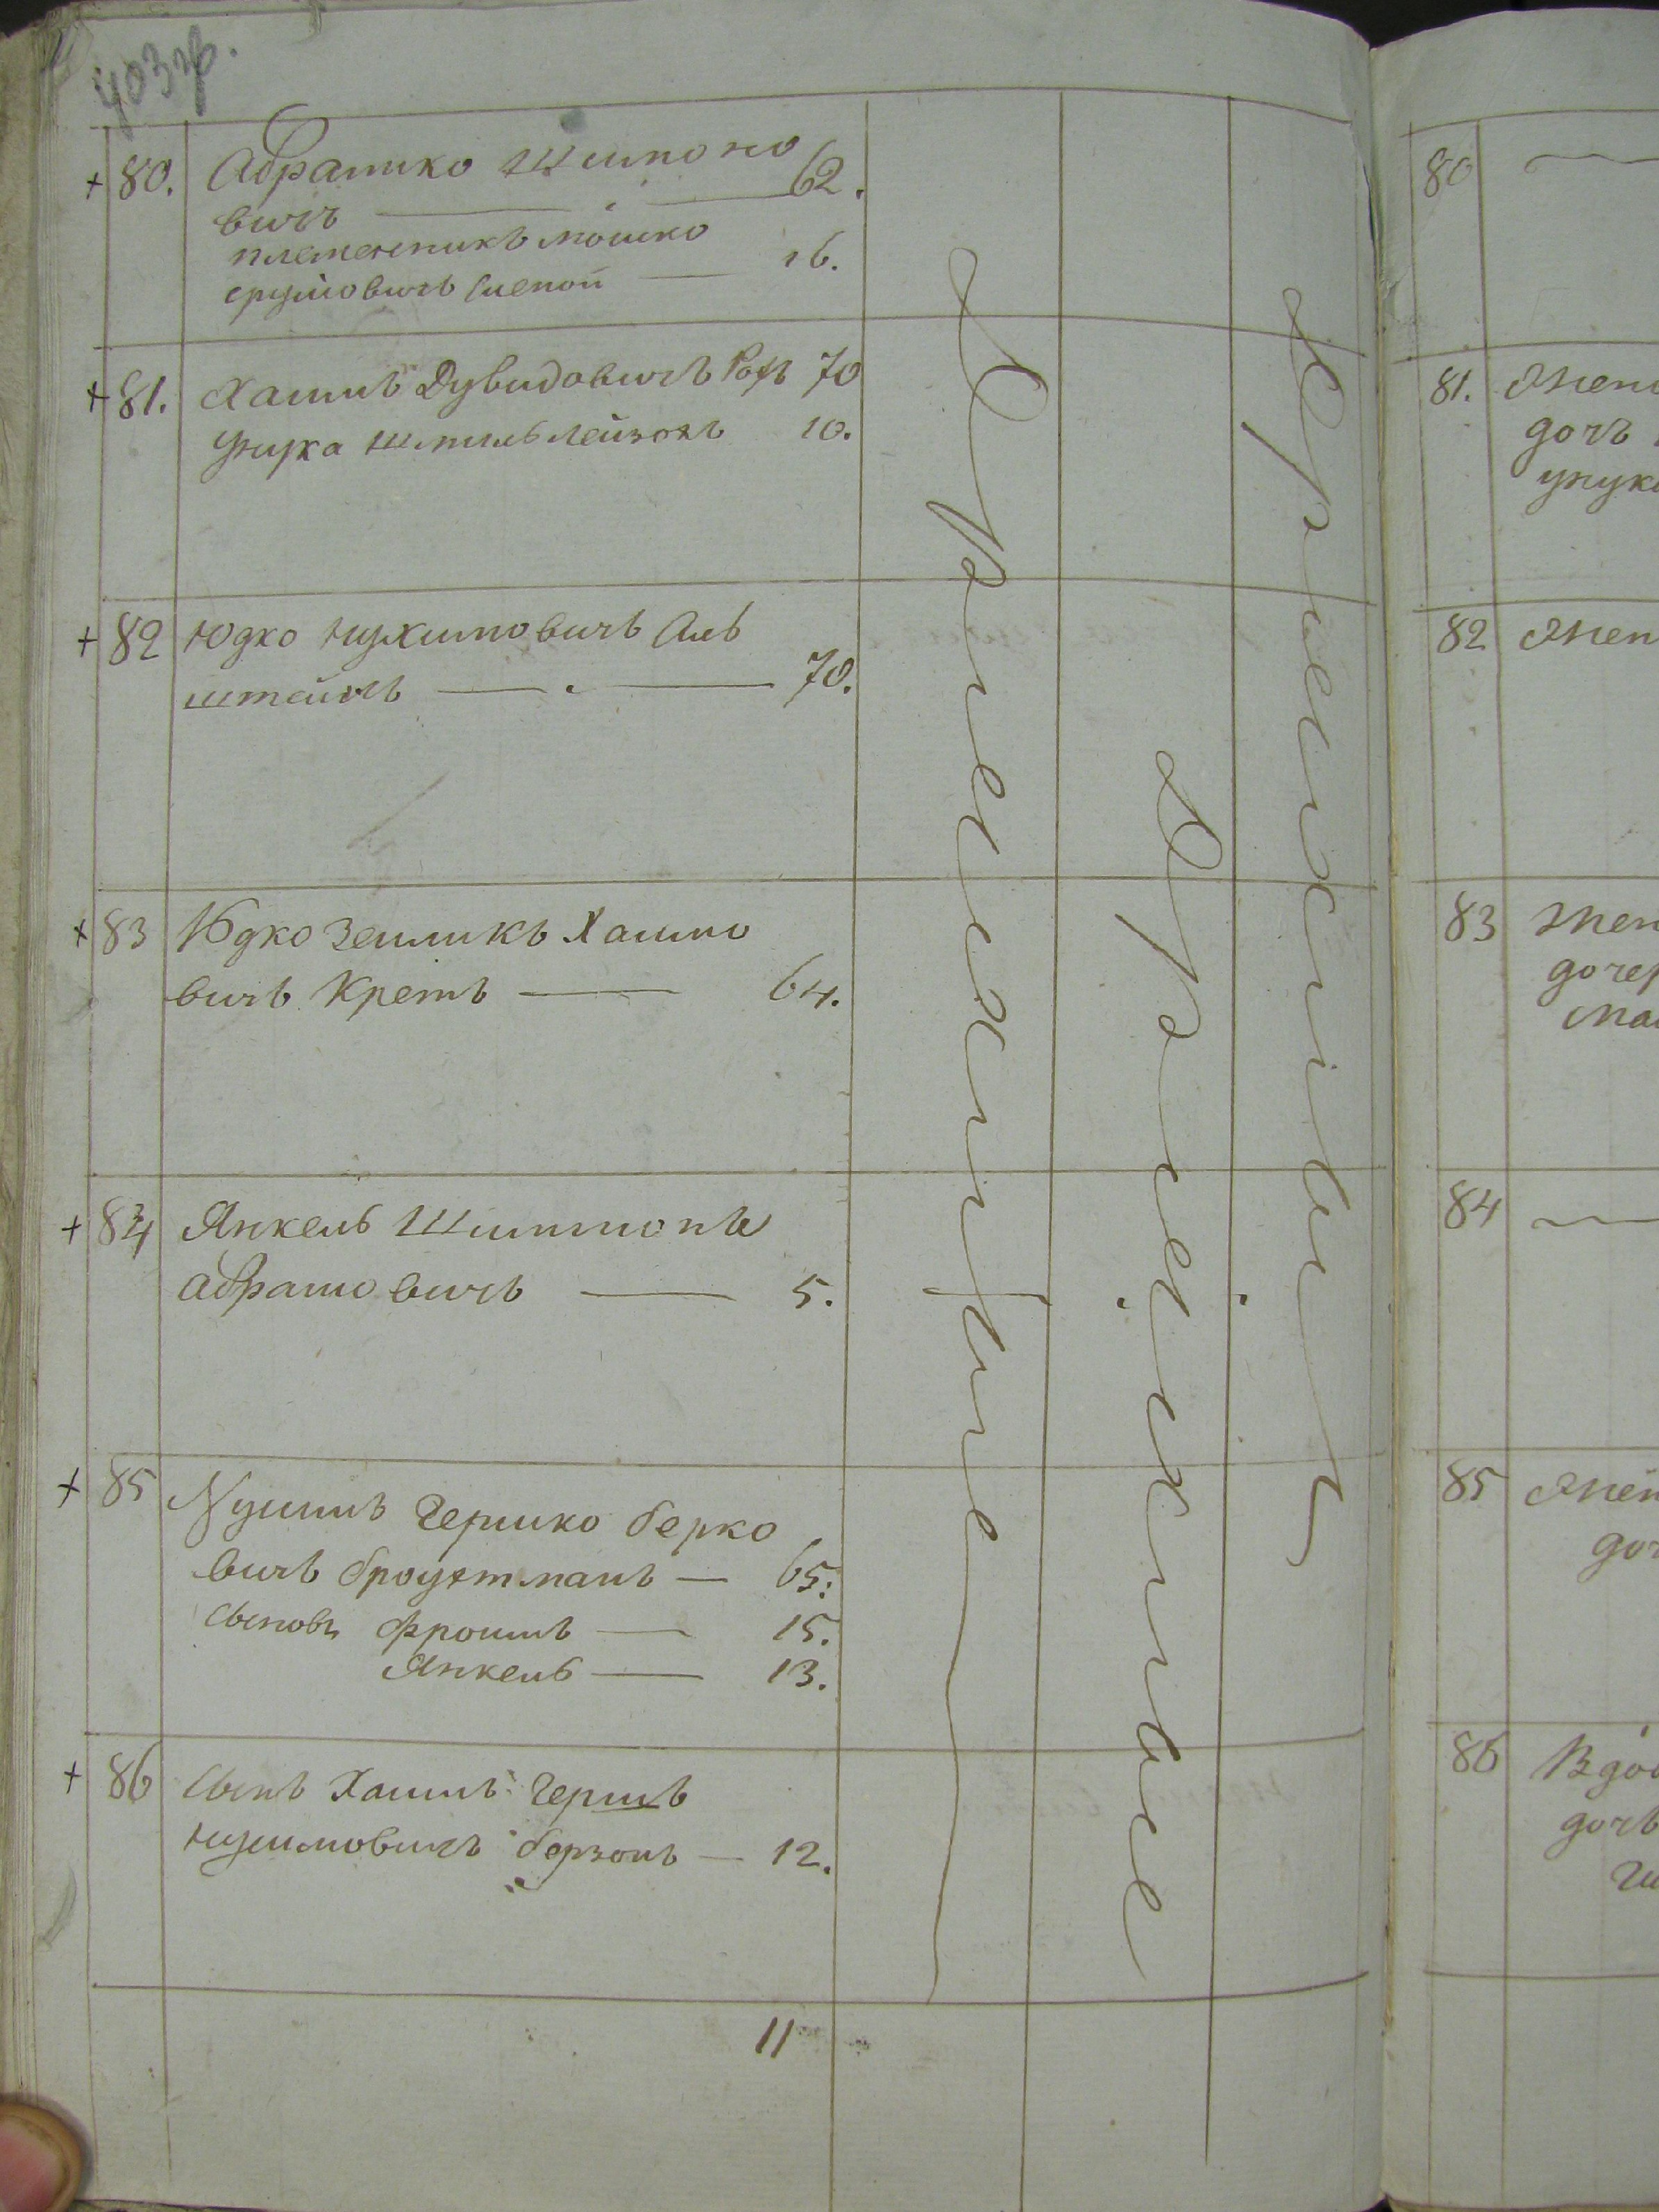 403 зв.
+ 80. Абрамко Шимоно
вичъ — 62.
племенникъ Мошко
Сруловичъ Слепой — 16.
+ 81. Хаимъ Дувидовичъ Рохъ 70
унука Шмиль Лейзоръ 10.
+ 82 Юдко Нухимовичъ Аль
штейнъ — 70.
+ 83 Юдко Зейликъ Хаимо
вичъ Кретъ — 64.
+ 84 Янкель Шиммонъ
Абрамовичъ — 5.
+ 85 Нухимъ Гершко Берко
вичъ Броутманъ — 65.
Сыновъ Фроимъ — 15.
Янкель — 13.
+ 86 Сынъ Хаимъ Гершъ
Нухимовичъ Берзонъ — 12.
Еврейские
Еврейские
Еврейский
11
80
81. Жен
дочъ
унук
82 Жен
83 Жен
дочер
Ма
84
85 Жен
доч
86 Вдов
дочъ